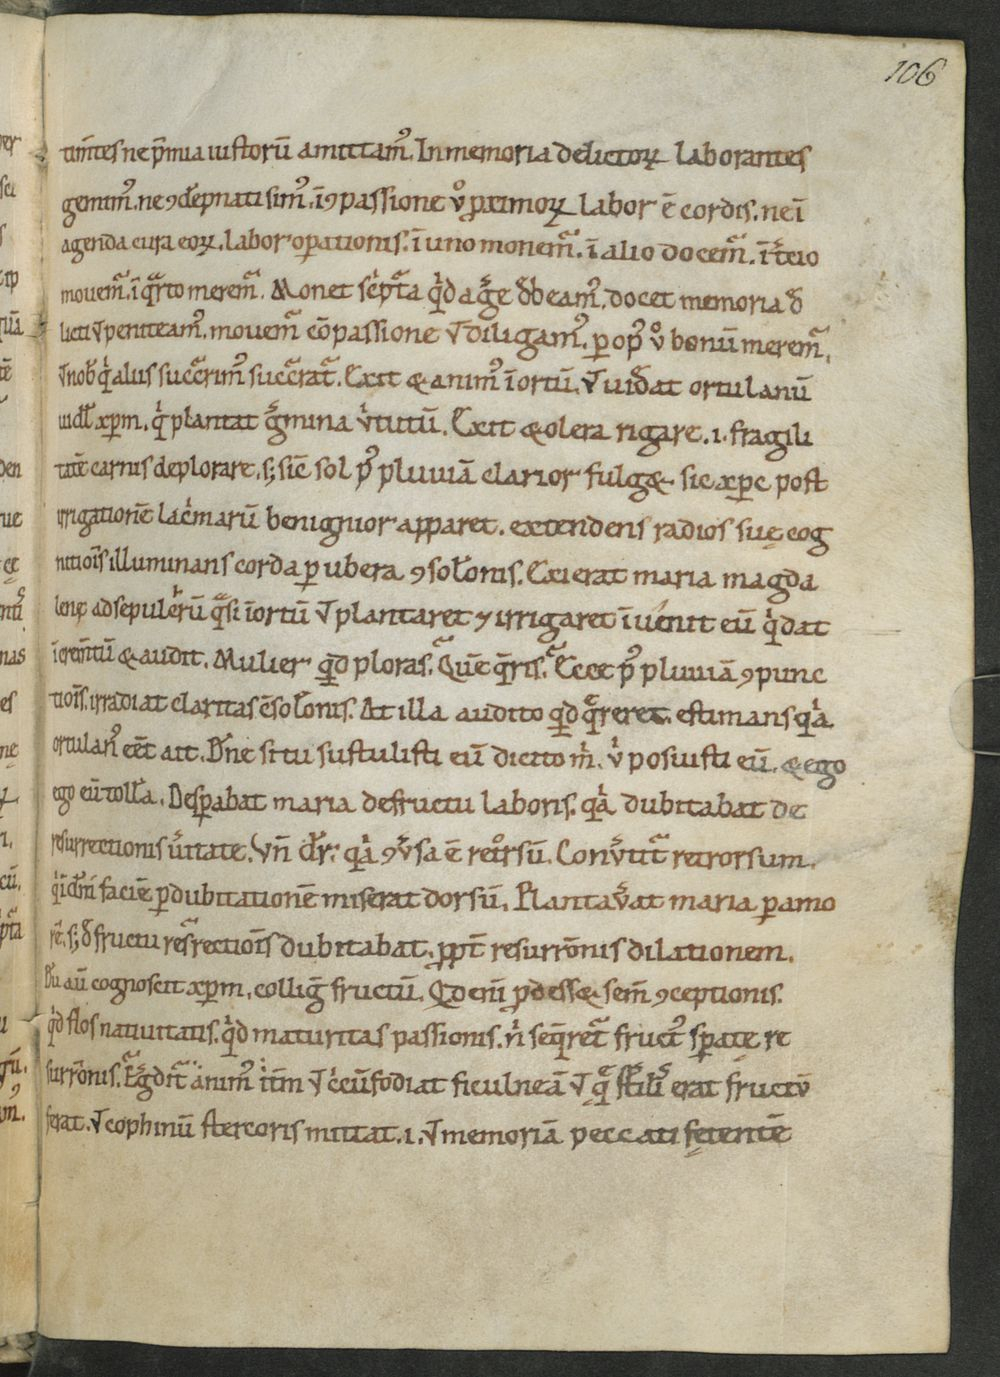 106
tim̄tes ne p̄mia iustorū amittam᾽. In memoria delictoꝝ laborantes
gemim᾽. ne ꝯdēpnati sim᾽. ī ꝯpassione ů proximoꝝ labor ē cordis. ne ī
agenda cura eoꝝ. labor oꝑationis. ī uno monem̃. ī alio docem̃. ī t̾cio
movem̃. ī q̃rto merem̃. Monet sc̾ptã qͥd ag̾e dēbeam᾽. docet memoria đ
licti ỽ peniteam᾽. movem̃ cōpassione ỽ diligam᾽. ꝑ op᾽ ů bonū merem̃.
ỽ nob̄ qͥ aliis succ̾rim᾽ succ̾rat̃. Exit & anim᾽ ī ortū. ỽ uiđat ortulanū
uiđł xp̄m. qͥ plantat g̾mina ṽtutū. Exit & olera rigare .i. fragili
tatē carnis deplorare. s; sic̄ sol p᾽ pluuiā clarior fulg& sic xp̄c post
irrigationē lac̾marū benignior apparet. extendens radios suę cog
nitiois̄ illuminans corda ꝑ ubera ꝯsolōnis. Exierat maria magda
lenę ad sepulc̾rū q̃si ī ortū ỽ plantaret ⁊ irrigaret īuenit eū qͥ dat
īcrem̄tū & audit. Mulier qͥd ploras. Quē q̄ris. Ecce p᾽ pluuiā ꝯpunc
tiois̄. irradiat claritas c̄solōnis. At illa audito qͥd q̃reret. estimans qͥa
ortulan᾽ eēt ait. Dn̄e si tu sustulisti eū dicito m̾. ů posuisti eū. & ego
ego eū tollā. Desꝑabat maria de fructu laboris. qͥa dubitabat de
resurrectionis ůitate. Vn̄ đr. qͥa ꝯůsa ē ret᷒rsū. Conůtit̃ retrorsum.
qͥ īđm̄i faciē ꝑ dubitationē miserat dorsū. Plantaůat maria ꝑ amo
rē. s; đ fructu res̃rectiois̄ dubitabat. ꝓpt̄ resurrōnis dilationem.
Dū aū cognoscit xp̄m. collig̾ fructū. Qđ eni̅ ꝓdess& sem̄ ꝯceptionis.
qͥd flos natiuitatis. qͥd maturitas passionis. n̾ seq̄ret̃ fruct᾽ sꝑatę re
surrōnis. Eg̾dit̃ anim᾽ itm̄ ỽ c̾cūfodiat ficulneā ỽ q̃ st̾ilis erat fructū
ferat. ỽ cophinū stercoris mittat .i. ỽ memoriā peccati fętentē